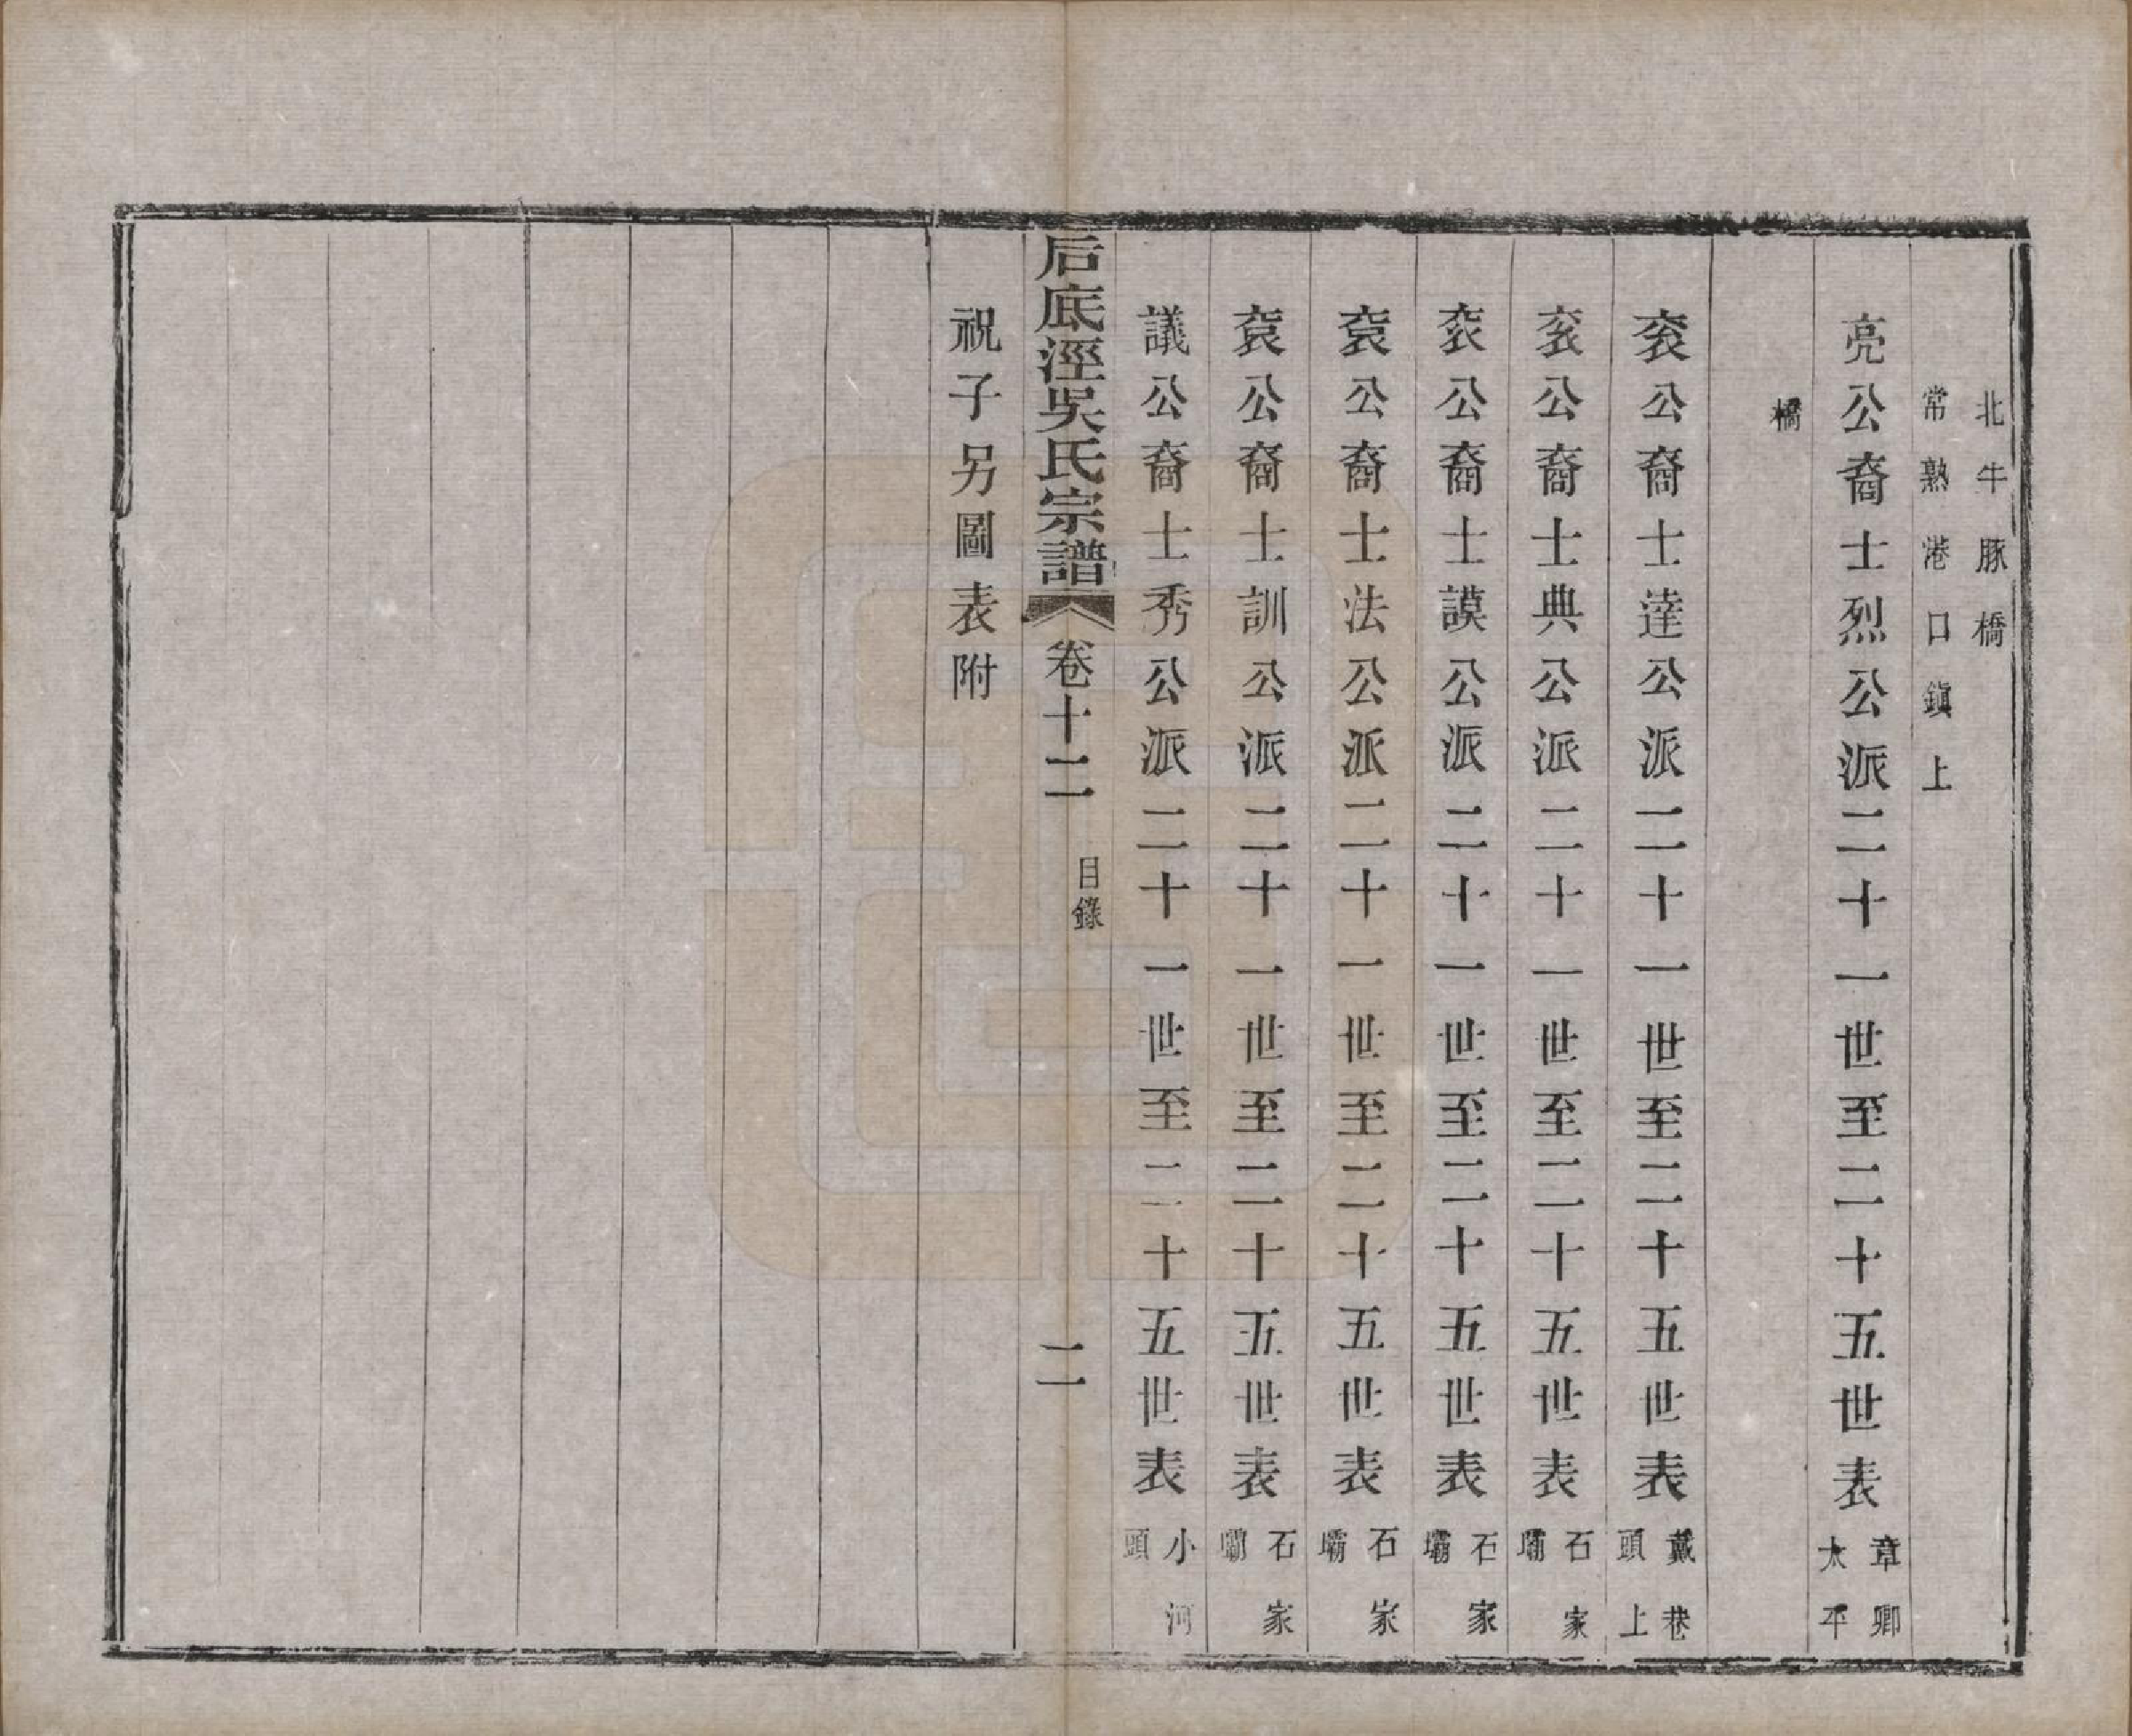 北牛豚橋
常熟港口鎮上
亮公裔士烈公派二十一世至二十五世表 章卿
太平
橋
衮公裔士達公派二十一世至二十五世表 戴巷
頭上
衮公裔士典公派二十一世至二十五世表 石家
壩
衮公裔士謨公派二十一世至二十五世表 石家
壩
袞公裔士法公派二十一世至二十五世表 石家
壩
袞公裔士訓公派二十一世至二十五世表 石家
壩
議公裔士秀公派二十一世至二十五世表 小河
頭
后底涇吳氏宗譜 卷十二 目錄 二
祝子另圖表附